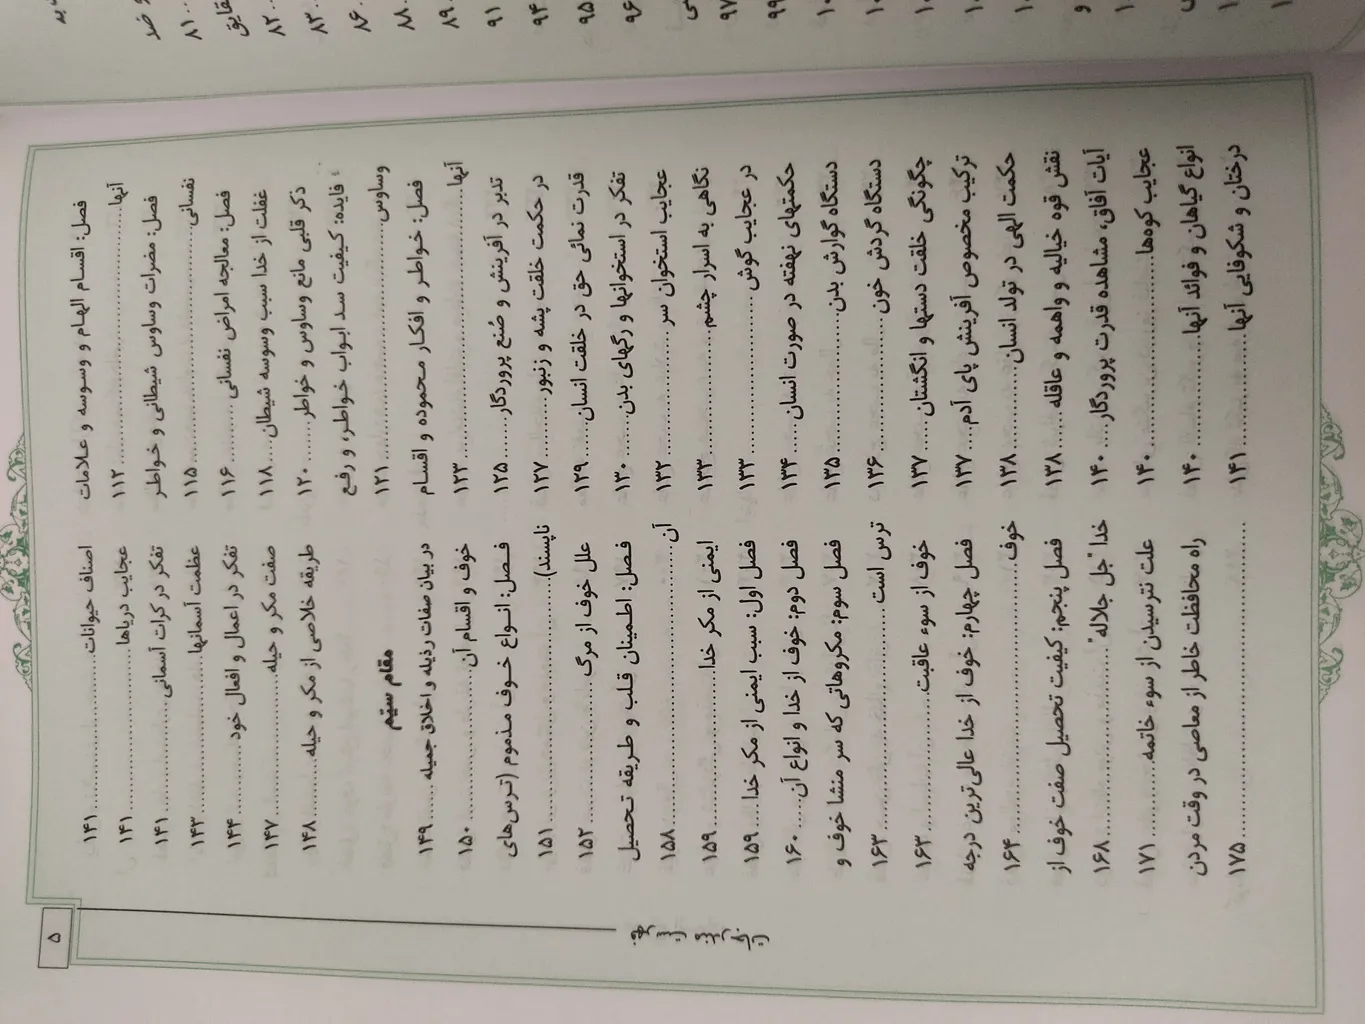 فصل: اقسام الهام و وسوسه و علامات
آنها................۱۱۲
فصل: مضرات وساوس شیطانی و خواطر
نفسانی................۱۱۵
فصل: معالجه امراض نفسانی........۱۱۶
غفلت از خدا سبب وسوسه شیطان....۱۱۸
ذکر قلبی مانع وساوس و خواطر......۱۲۰
فایده: کیفیت سد ابواب خواطر، و رفع
وساوس................۱۲۱
فصل: خواطر و افکار محموده و اقسام
آنها................۱۲۳
تدبر در آفرینش و صُنع پروردگار......۱۲۵
در حکمت خلقت پشه و زنبور........۱۲۷
قدرت نمائی حق در خلقت انسان....۱۲۹
تفکر در استخوانها و رگهای بدن.....۱۳۰
عجایب استخوان سر............۱۳۲
نگاهی به اسرار چشم............۱۳۳
در عجایب گوش................۱۳۳
حکمتهای نهفته در صورت انسان.....۱۳۴
دستگاه گوارش بدن............۱۳۵
دستگاه گردش خون............۱۳۶
چگونگی خلقت دستها و انگشتان.....۱۳۷
ترکیب مخصوص آفرینش پای آدم....۱۳۷
حکمت الهی در تولد انسان.........۱۳۸
نقش قوه خیالیه و واهمه و عاقله....۱۳۸
آیات آفاق، مشاهده قدرت پروردگار...۱۴۰
عجایب کوه‌ها................۱۴۰
انواع گیاهان و فوائد آنها.........۱۴۰
درختان و شکوفایی آنها.........۱۴۱
اصناف حیوانات................۱۴۱
عجایب دریاها................۱۴۱
تفکر در کرات آسمانی............۱۴۱
عظمت آسمانها................۱۴۳
تفکر در اعمال و افعال خود........۱۴۴
صفت مکر و حیله................۱۴۷
طریقه خلاصی از مکر و حیله........۱۴۸
مقام سیّم
در بیان صفات رذیله و اخلاق جمیله....۱۴۹
خوف و اقسام آن................۱۵۰
فصل: انواع خوف مذموم (ترس‌های
ناپسند)................۱۵۱
علل خوف از مرگ................۱۵۲
فصل: اطمینان قلب و طریقه تحصیل
آن................۱۵۸
ایمنی از مکر خدا................۱۵۹
فصل اول: سبب ایمنی از مکر خدا....۱۵۹
فصل دوم: خوف از خدا و انواع آن....۱۶۰
فصل سوم: مکروهاتی که سر منشا خوف و
ترس است................۱۶۳
خوف از سوء عاقبت............۱۶۳
فصل چهارم: خوف از خدا عالی‌ترین درجه
خوف................۱۶۴
فصل پنجم: کیفیت تحصیل صفت خوف از
خدا "جل جلاله"............۱۶۸
علت نترسیدن از سوء خاتمه........۱۷۱
راه محافظت خاطر از معاصی در وقت مردن
................۱۷۵
۵